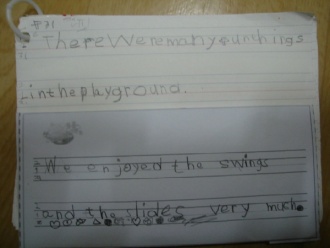 Thereweremanyfunthings
intheplayground.
We enjoyed the swings
and the slides very much.